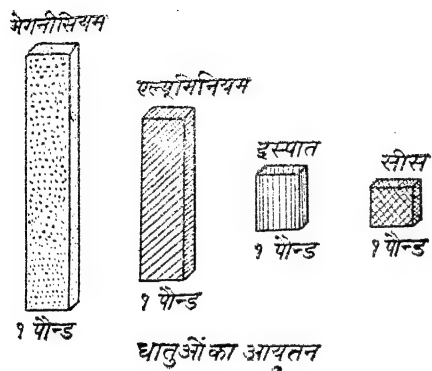 मेगनीसियम
एल्यूमिनियम
इस्पात
सीस
१ पौन्ड
१ पौन्ड
१ पौन्ड
१ पौन्ड
धातुओं का आयतन